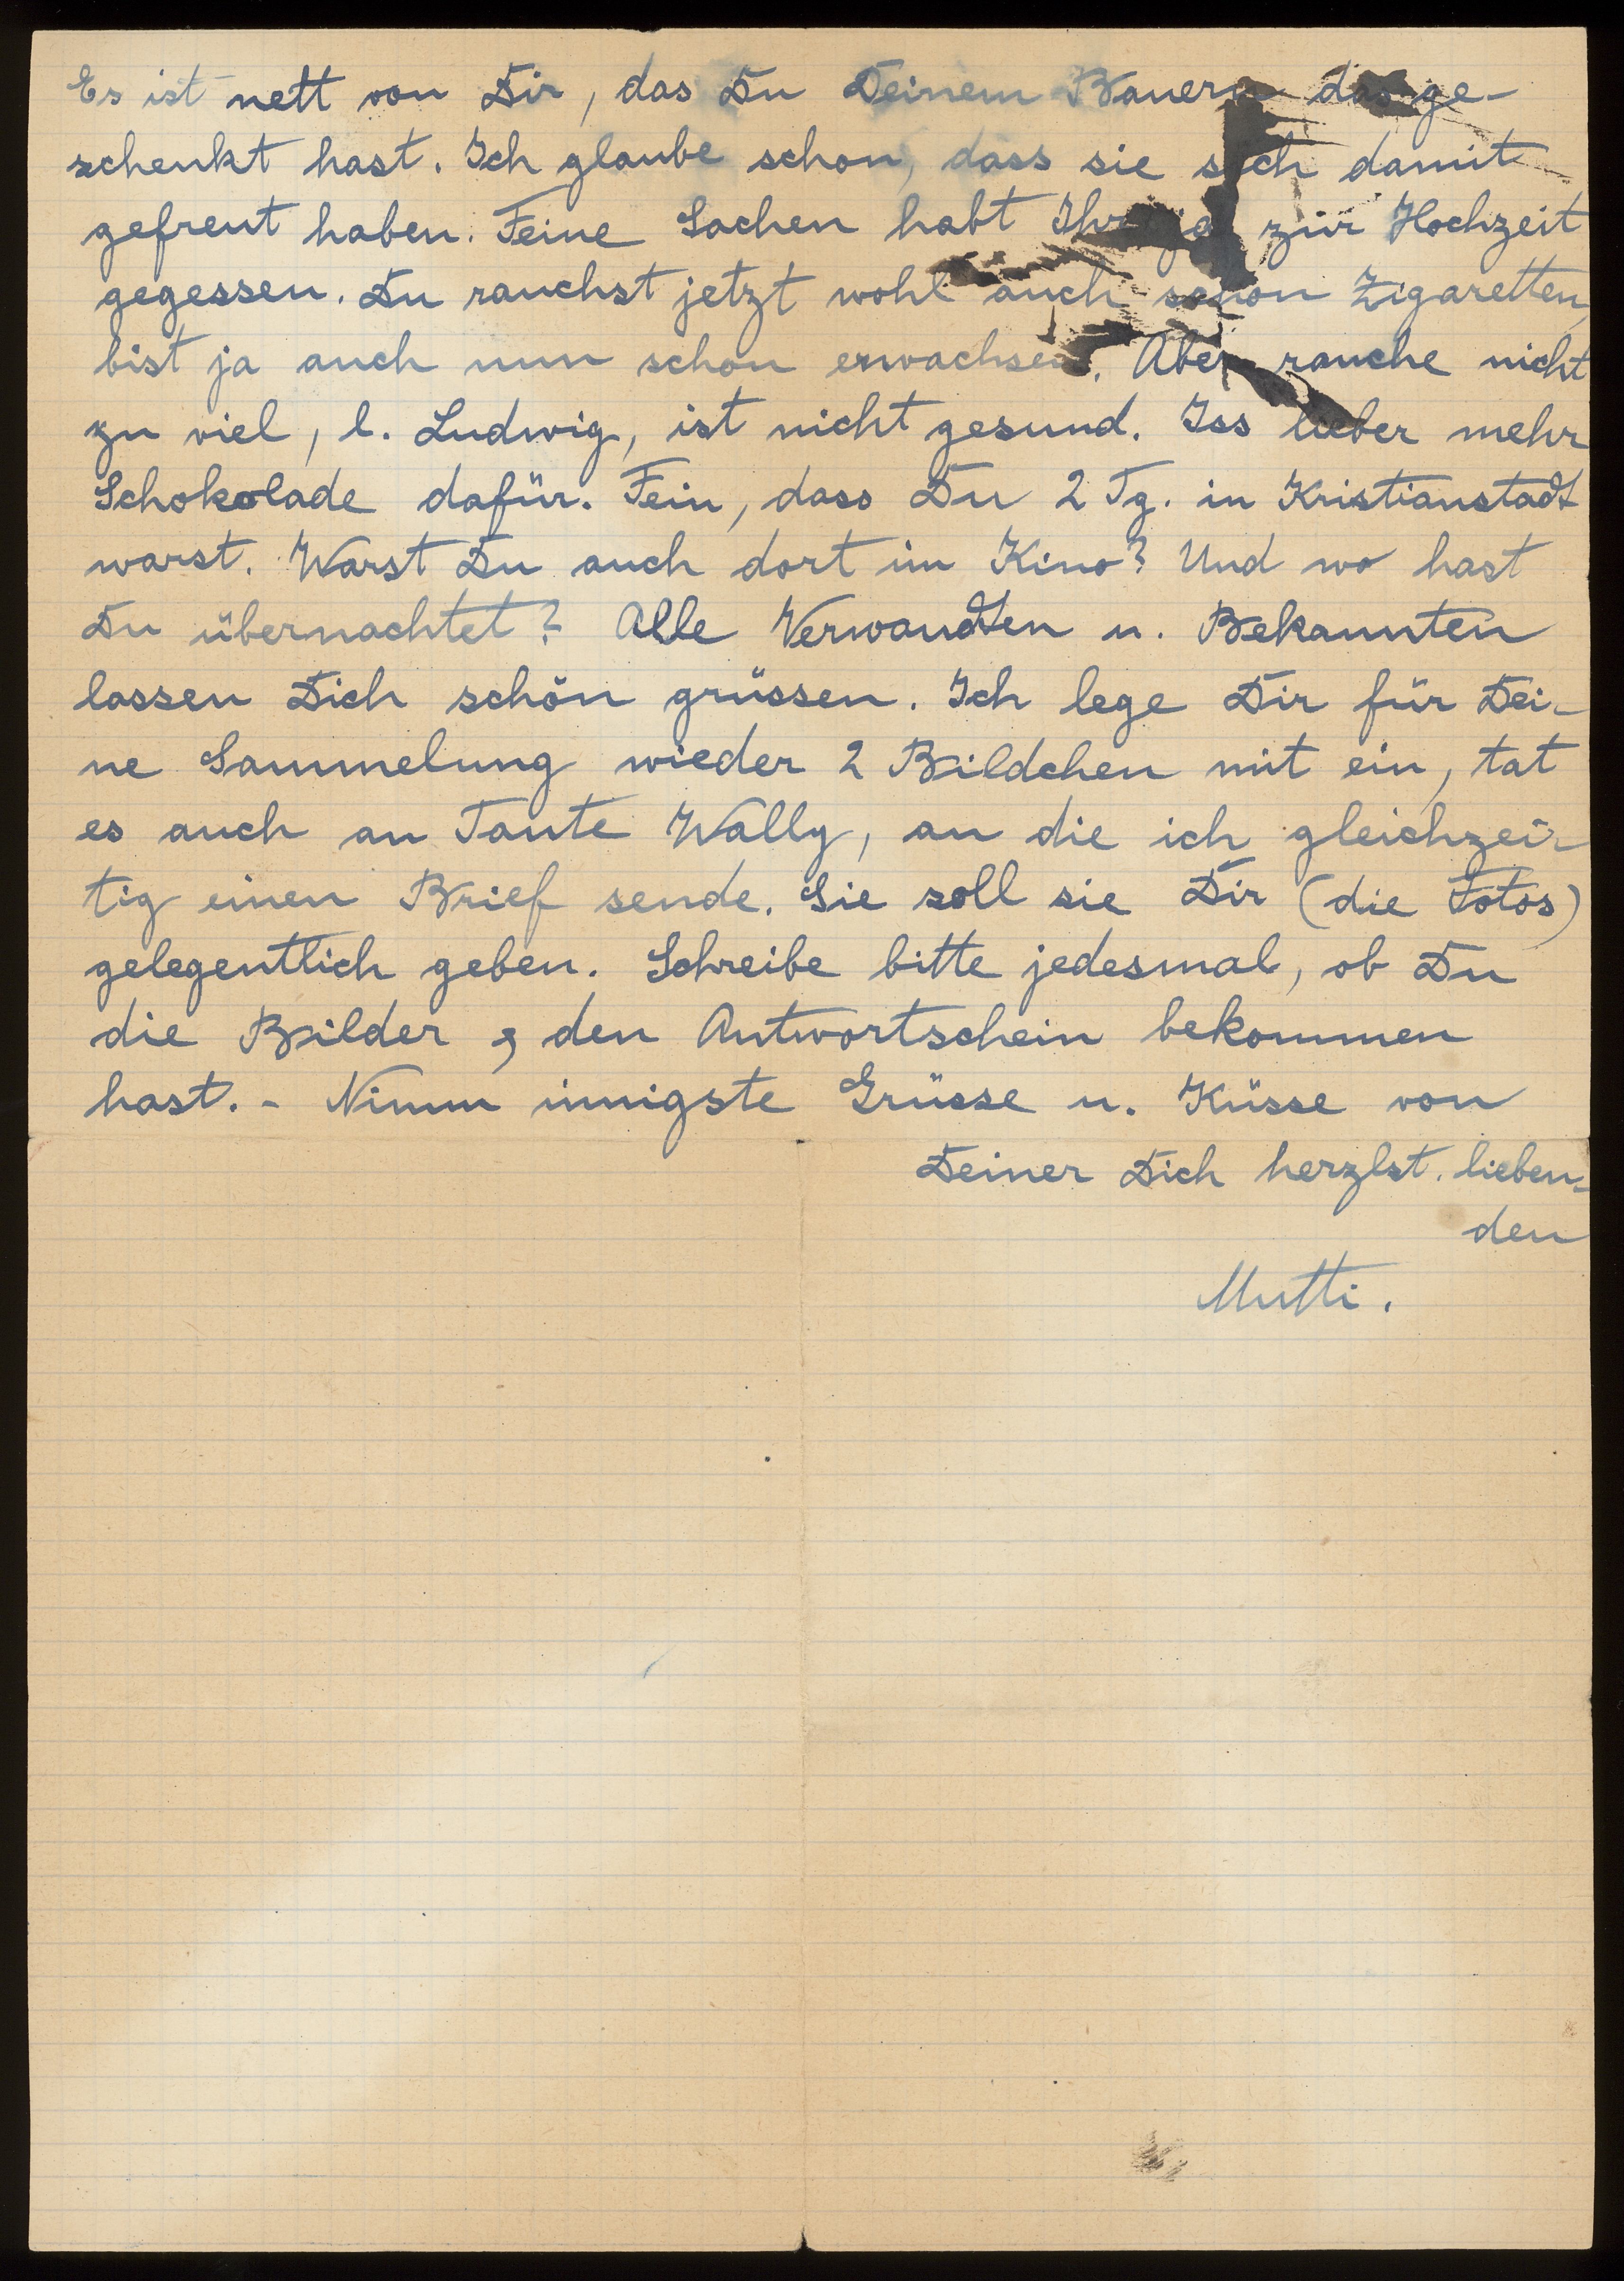 Es ist nett von Dir, das Du Deinem Bauern das ge-
schenkt hast. Ich glaube schon, dass sie sich damit
gefreut haben. Feine Sachen habt Ihr ja zur Hochzeit
gegessen. Du rauchst jetzt wohl auch schon Zigaretten,
bist ja auch nun schon erwachsen. Aber rauche nicht
zu viel, l. Ludwig, ist nicht gesund. Iss lieber mehr
Schokolade dafür. Fein, dass Du 2 Tg. in Kristianstadt
warst. Warst Du auch dort im Kino? Und wo hast
Du übernachtet? Alle Verwandten u. Bekannten
lassen Dich schön grüssen. Ich lege Dir für Dei-
ne Sammelung wieder 2 Bildchen mit ein, tat
es auch an Tante Wally, an die ich gleichzei-
tig einen Brief sende. Sie soll sie Dir (die Fotos)
gelegentlich geben. Schreibe bitte jedesmal, ob Du
die Bilder & den Antwortschein bekommen
hast. - Nimm innigste Grüsse u. Küsse von
Deiner Dich herzlst. lieben-
den
Mutti.